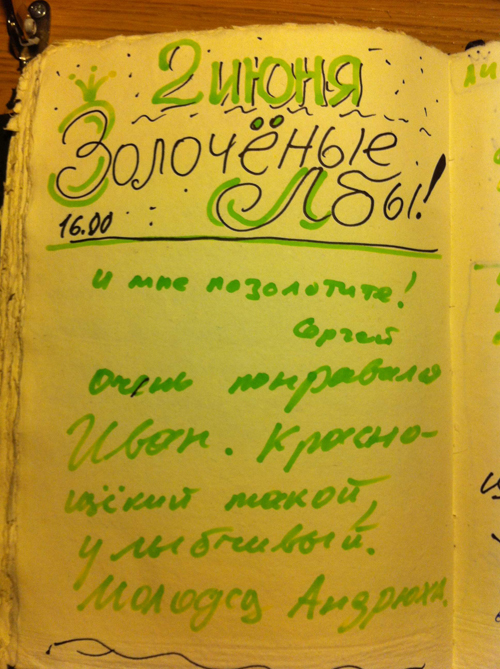 2 июня
Золочёные
Лбы!
16.00
и мне позолотите!
Сергей
очень понравился
Иван. Красно-
щёкий такой,
улыбчивый.
Молодец Андрюха.